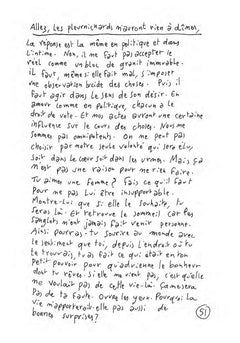 Allez, les pleurnichards n'auront rien à dîner,
La réponse est la même en politique et dans
l'intime. Non, il ne faut pas accepter le
réel comme un bloc de granit immuable.
Il faut, même si elle fait mal, s'imposer
une observation lucide des choses. Puis il
faut agir dans le sens de son désir. En
amour comme en politique, chacun a le
droit de vote. Et nos actes auront une certaine
influence sur le cours des choses. Nous ne
sommes pas omnipotents. On ne peut pas
choisir par notre seule volonté qui sera élu,
soit dans le cœur soit dans les urnes. Mais ça
n'est pas une raison pour ne rien faire.
Tu aimes une femme? Fais ce qu'il faut
pour ne pas lui être insupportable.
Montre-lui que si elle le souhaite, tu
seras là. Et retrouve le sommeil car tes
sanglots n'ont jamais fait venir personne.
Ainsi pourras-tu sourire au monde avec
le sentiment que toi, depuis l'endroit où tu
te trouvais, tu as fait ce qui était en ton
petit pouvoir pour qu'advienne le bonheur
dont tu rêves. Si elle ne vient pas, c'est qu'elle
ne voulait pas de cette vie-là. Ce ne sera
pas de ta faute. Ouvre les yeux. Pourquoi la
vie n'apporterait-elle pas aussi de
bonnes surprises?
51